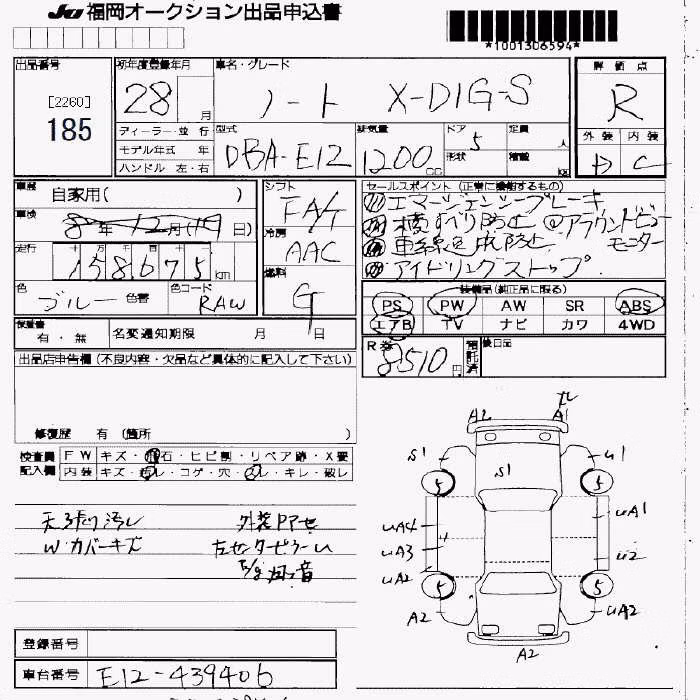 JU 福岡オークション出品申込書
*1001306594*
出品番号
[2260]
185
初年度登録年月
28 月
車名・グレード
ノート X-DIG-S
評価点
R
ディーラー・並行
モデル年式 年
ハンドル 左・右
型式
DBA-E12
排気量
1200 cc
ドア
5
形状
定員
人
積載
kg
外装 内装
D C
車歴
自家用( )
車検
8年12月(19日)
走行
十 万 千 百 十
158675 km
色
ブルー
色替
色コード
RAW
シフト
FA/T
冷房
AAC
燃料
G
セールスポイント (正常に機能するもの)
エマージェンシーブレーキ
横すべり防止 アラウンドビュー
車線逸脱防止 モニター
アイドリングストップ
装備品(純正品に限る)
PS PW AW SR ABS
エアB TV ナビ カワ 4WD
保証書
有・無
名変通知期限 月 日
R券
8510円
預託済
後日品
出品店申告欄(不良内容・欠品など具体的に記入して下さい)
修復歴 有 (箇所 )
検査員
記入欄
FW キズ・飛石・ヒビ割・リペア跡・X要
内装 キズ・汚レ・コゲ・穴・スレ・キレ・破レ
天張り汚レ 外装Pアセ
W・カバーキズ 左センターピラーu
A2 A1
S1 S1 u1
5 5
uA4 uA1
uA3 4 u2
uA2
5 5
A2 uA2
A2
登録番号
車台番号
E12-439406